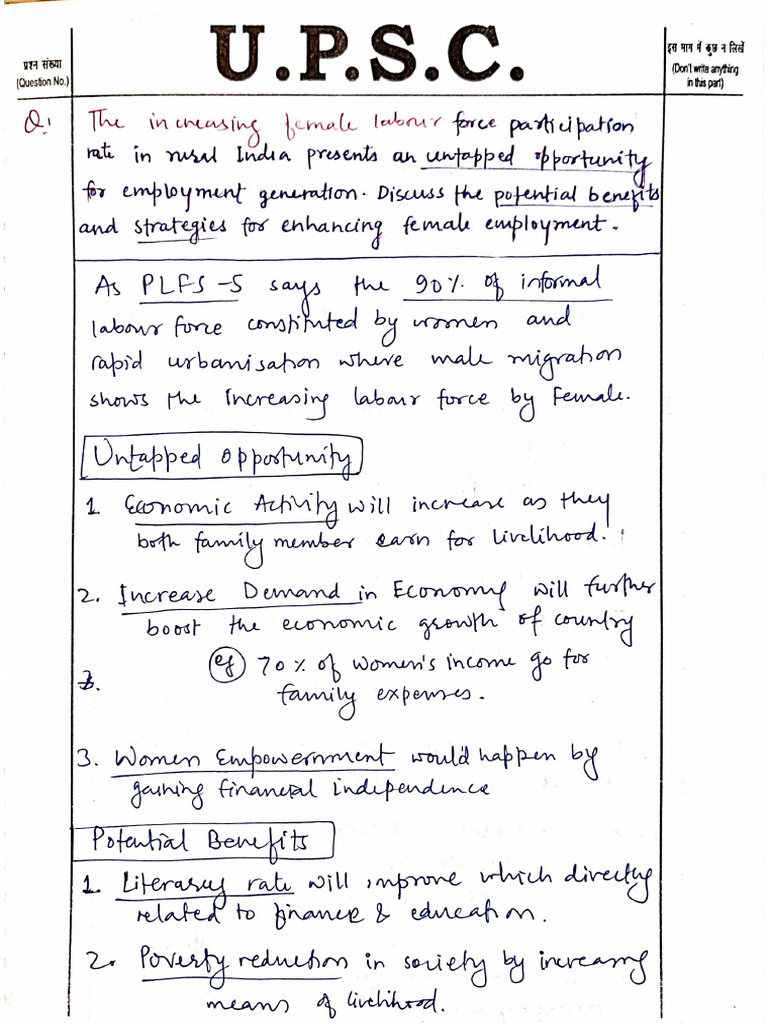 प्रश्न संख्या
(Question No.)
U.P.S.C.
इस भाग में कुछ न लिखें
(Don't write anything
in this part)
Q.
The increasing female labour force participation
rate in rural India presents an untapped opportunity
for employment generation. Discuss the potential benefits
and strategies for enhancing female employment.
As PLFS-5 says the 90% of informal
labour force constituted by women and
rapid urbanisation where male migration
shows the Increasing labour force by Female.
Untapped Opportunity
1. Economic Activity will increase as they
both family member earn for livelihood.
2. Increase Demand in Economy will further
boost the economic growth of country
eg 70% of women's income go for
family expenses.
3. Women Empowernment would happen by
gaining financial independence
Potential Benefits
1. Literacy rate will improve which directly
related to finance & education.
2. Poverty reduction in society by increasing
means of livelihood.